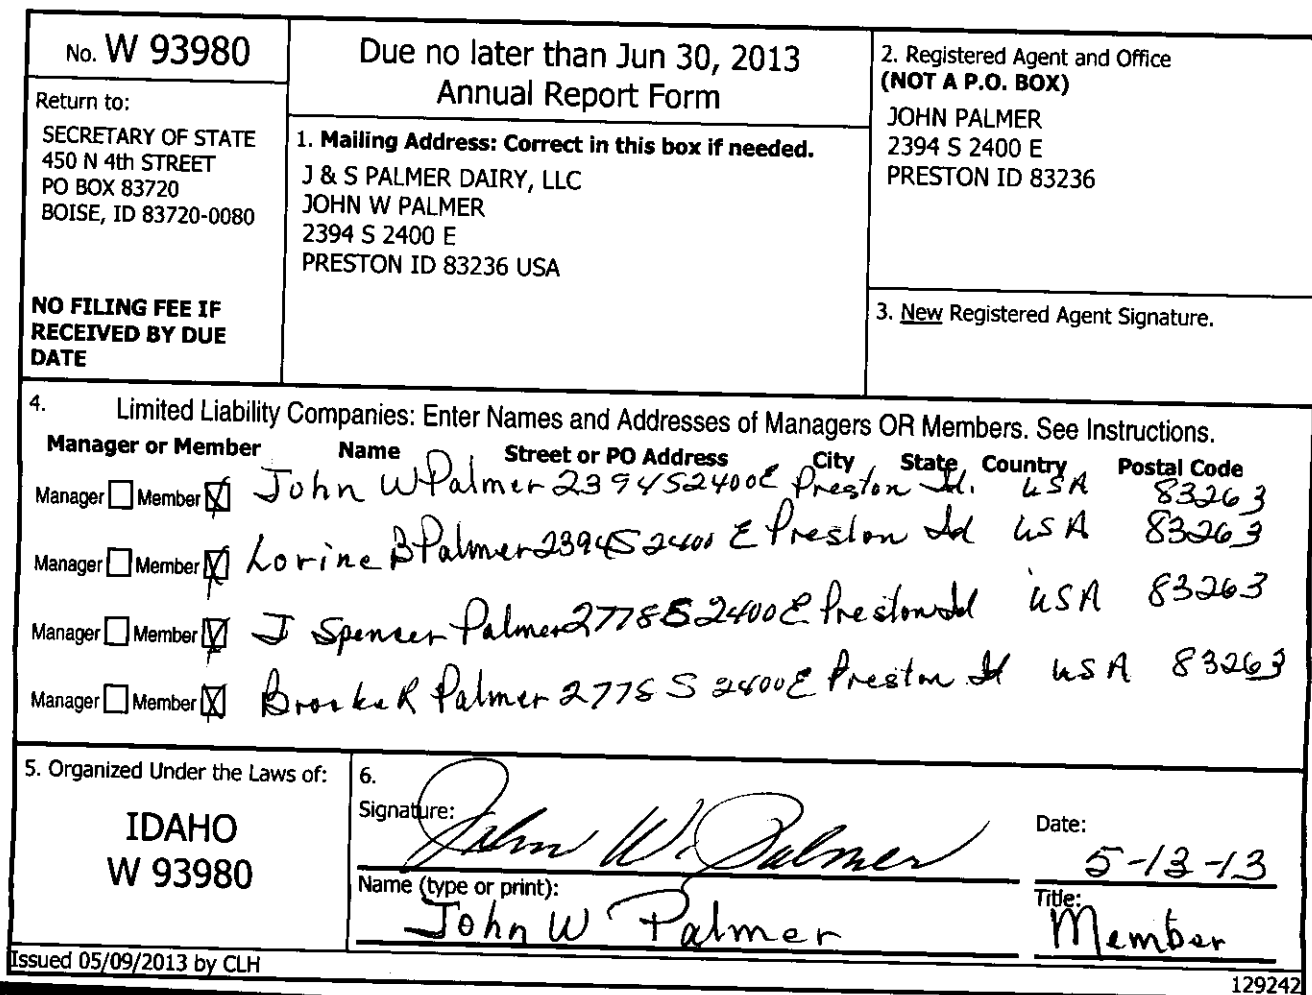 No. W 93980
Return to:
SECRETARY OF STATE
450 N 4th STREET
PO BOX 83720
BOISE, ID 83720-0080
NO FILING FEE IF
RECEIVED BY DUE
DATE
Due no later than Jun 30, 2013
Annual Report Form
1. Mailing Address: Correct in this box if needed.
J & S PALMER DAIRY, LLC
JOHN W PALMER
2394 S 2400 E
PRESTON ID 83236 USA
2. Registered Agent and Office
(NOT A P.O. BOX)
JOHN PALMER
2394 S 2400 E
PRESTON ID 83236
3. New Registered Agent Signature.
4. Limited Liability Companies: Enter Names and Addresses of Managers OR Members. See Instructions.
Manager or Member Name Street or PO Address City State Country Postal Code
Manager Member John W Palmer 2394 S 2400 E Preston Id. USA 83263
Manager Member Lorine B Palmer 2394 S 2400 E Preston Id USA 83263
Manager Member J Spencer Palmer 2778 S 2400 E Preston Id USA 83263
Manager Member Brooke R Palmer 2778 S 2400 E Preston Id USA 83263
5. Organized Under the Laws of:
IDAHO
W 93980
6.
Signature: John W. Palmer
Date: 5-13-13
Name (type or print):
John W Palmer
Title:
Member
Issued 05/09/2013 by CLH
129242